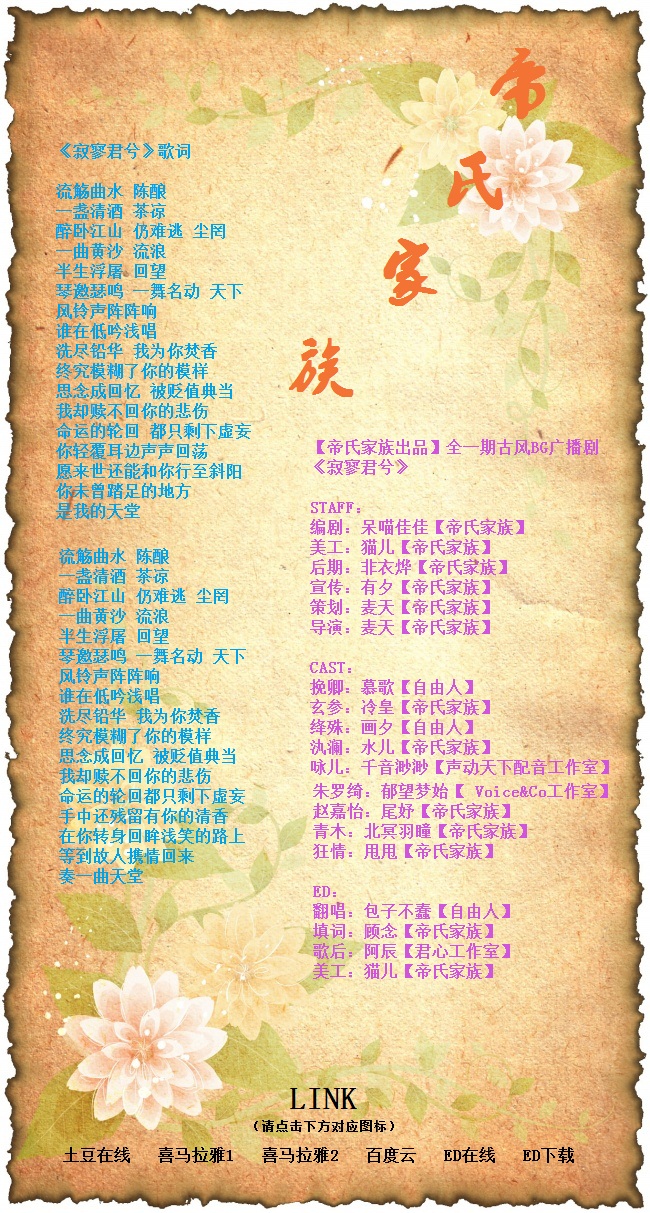 帝氏家族
《寂寥君兮》歌词
流觞曲水 陈酿
一盏清酒 茶凉
醉卧江山 仍难逃 尘罔
一曲黄沙 流浪
半生浮屠 回望
琴邀瑟鸣 一舞名动 天下
风铃声阵阵响
谁在低吟浅唱
洗尽铅华 我为你焚香
终究模糊了你的模样
思念成回忆 被贬值典当
我却赎不回你的悲伤
命运的轮回 都只剩下虚妄
你轻覆耳边声声回荡
愿来世还能和你行至斜阳
你未曾踏足的地方
是我的天堂
流觞曲水 陈酿
一盏清酒 茶凉
醉卧江山 仍难逃 尘罔
一曲黄沙 流浪
半生浮屠 回望
琴邀瑟鸣 一舞名动 天下
风铃声阵阵响
谁在低吟浅唱
洗尽铅华 我为你焚香
终究模糊了你的模样
思念成回忆 被贬值典当
我却赎不回你的悲伤
命运的轮回都只剩下虚妄
手中还残留有你的清香
在你转身回眸浅笑的路上
等到故人携情回来
奏一曲天堂
【帝氏家族出品】全一期古风BG广播剧
《寂寥君兮》
STAFF：
编剧：呆喵佳佳【帝氏家族】
美工：猫儿【帝氏家族】
后期：非衣烨【帝氏家族】
宣传：有夕【帝氏家族】
策划：麦天【帝氏家族】
导演：麦天【帝氏家族】
CAST：
挽卿：慕歌【自由人】
玄参：冷皇【帝氏家族】
绛殊：画夕【自由人】
汍澜：水儿【帝氏家族】
咏儿：千音渺渺【声动天下配音工作室】
朱罗绮：郁望梦始【 Voice&Co工作室】
赵嘉怡：尾妤【帝氏家族】
青木：北冥羽瞳【帝氏家族】
狂情：甩甩【帝氏家族】
ED：
翻唱：包子不蠢【自由人】
填词：顾念【帝氏家族】
歌后：阿辰【君心工作室】
美工：猫儿【帝氏家族】
LINK
（请点击下方对应图标）
土豆在线 喜马拉雅1 喜马拉雅2 百度云 ED在线 ED下载